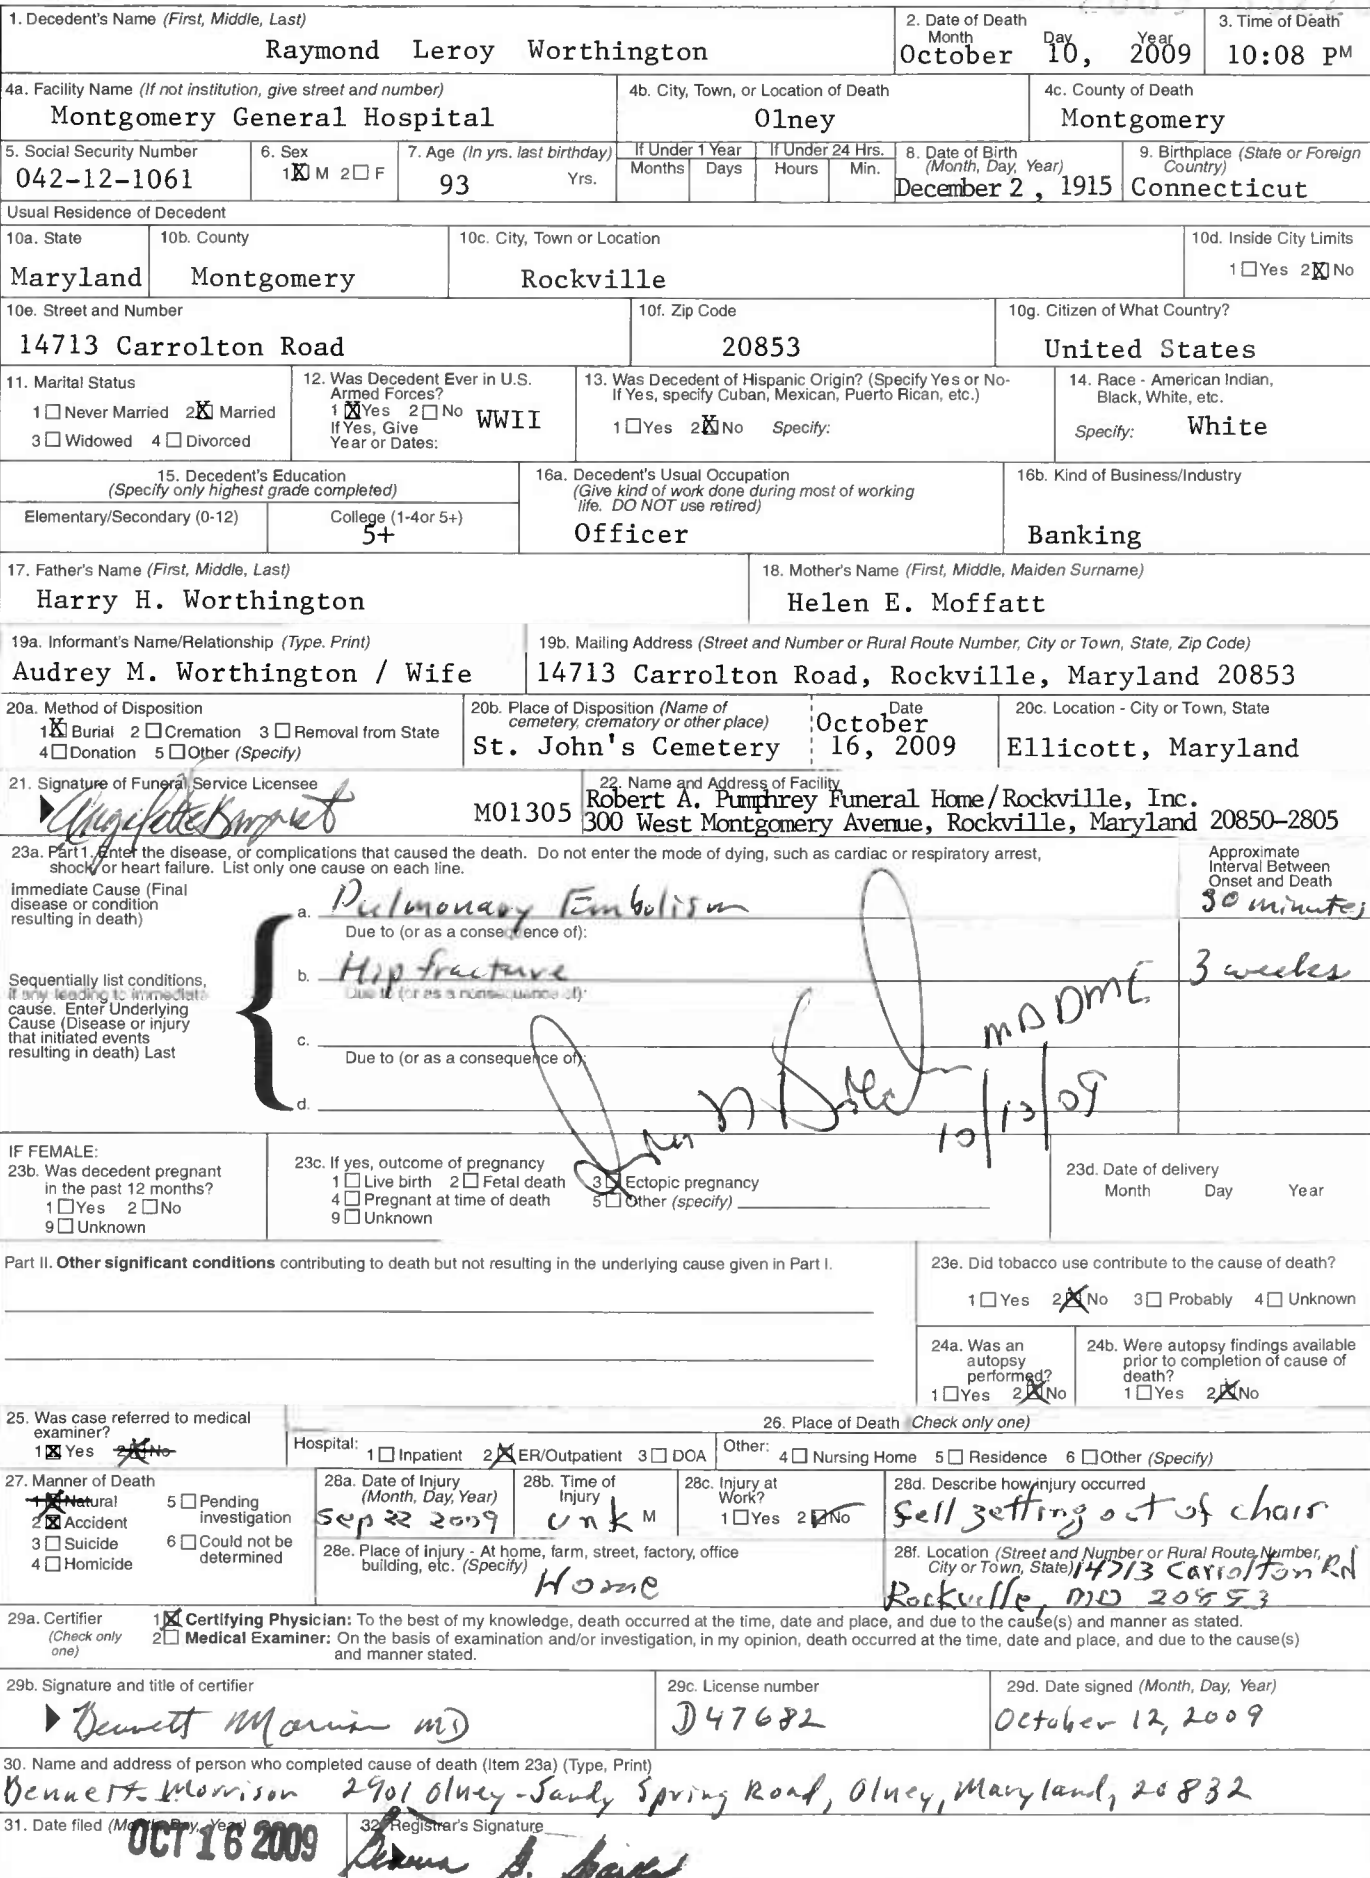 1. Decedent's Name (First, Middle, Last)
Raymond Leroy Worthington
2. Date of Death
Month Day Year
October 10, 2009
3. Time of Death
10:08 PM
4a. Facility Name (If not institution, give street and number)
Montgomery General Hospital
4b. City, Town, or Location of Death
Olney
4c. County of Death
Montgomery
5. Social Security Number
042-12-1061
6. Sex
1 X M 2 F
7. Age (In yrs. last birthday)
93 Yrs.
If Under 1 Year
Months Days
If Under 24 Hrs.
Hours Min.
8. Date of Birth
(Month, Day, Year)
December 2, 1915
9. Birthplace (State or Foreign
Country)
Connecticut
Usual Residence of Decedent
10a. State
Maryland
10b. County
Montgomery
10c. City, Town or Location
Rockville
10d. Inside City Limits
1 Yes 2 X No
10e. Street and Number
14713 Carrolton Road
10f. Zip Code
20853
10g. Citizen of What Country?
United States
11. Marital Status
1 Never Married 2 X Married
3 Widowed 4 Divorced
12. Was Decedent Ever in U.S.
Armed Forces?
1 X Yes 2 No WWII
If Yes, Give
Year or Dates:
13. Was Decedent of Hispanic Origin? (Specify Yes or No-
If Yes, specify Cuban, Mexican, Puerto Rican, etc.)
1 Yes 2 X No Specify:
14. Race - American Indian,
Black, White, etc.
Specify: White
15. Decedent's Education
(Specify only highest grade completed)
Elementary/Secondary (0-12)
College (1-4or 5+)
5+
16a. Decedent's Usual Occupation
(Give kind of work done during most of working
life. DO NOT use retired)
Officer
16b. Kind of Business/Industry
Banking
17. Father's Name (First, Middle, Last)
Harry H. Worthington
18. Mother's Name (First, Middle, Maiden Surname)
Helen E. Moffatt
19a. Informant's Name/Relationship (Type. Print)
Audrey M. Worthington / Wife
19b. Mailing Address (Street and Number or Rural Route Number, City or Town, State, Zip Code)
14713 Carrolton Road, Rockville, Maryland 20853
20a. Method of Disposition
1 X Burial 2 Cremation 3 Removal from State
4 Donation 5 Other (Specify)
20b. Place of Disposition (Name of
cemetery, crematory or other place)
St. John's Cemetery
Date
October
16, 2009
20c. Location - City or Town, State
Ellicott, Maryland
21. Signature of Funeral Service Licensee
M01305
22. Name and Address of Facility
Robert A. Pumphrey Funeral Home/Rockville, Inc.
300 West Montgomery Avenue, Rockville, Maryland 20850-2805
23a. Part 1. Enter the disease, or complications that caused the death. Do not enter the mode of dying, such as cardiac or respiratory arrest,
shock, or heart failure. List only one cause on each line.
Approximate
Interval Between
Onset and Death
Immediate Cause (Final
disease or condition
resulting in death)
a. Pulmonary Embolism
30 minutes
Due to (or as a consequence of):
Sequentially list conditions,
if any leading to immediate
cause. Enter Underlying
Cause (Disease or injury
that initiated events
resulting in death) Last
b. Hip fracture
3 weeks
Due to (or as a consequence of):
c.
Due to (or as a consequence of):
d.
MD DME
10/13/09
IF FEMALE:
23b. Was decedent pregnant
in the past 12 months?
1 Yes 2 No
9 Unknown
23c. If yes, outcome of pregnancy
1 Live birth 2 Fetal death 3 Ectopic pregnancy
4 Pregnant at time of death 5 Other (specify)
9 Unknown
23d. Date of delivery
Month Day Year
Part II. Other significant conditions contributing to death but not resulting in the underlying cause given in Part I.
23e. Did tobacco use contribute to the cause of death?
1 Yes 2 X No 3 Probably 4 Unknown
24a. Was an
autopsy
performed?
1 Yes 2 X No
24b. Were autopsy findings available
prior to completion of cause of
death?
1 Yes 2 X No
25. Was case referred to medical
examiner?
1 X Yes 2 X No
26. Place of Death (Check only one)
Hospital: 1 Inpatient 2 X ER/Outpatient 3 DOA
Other: 4 Nursing Home 5 Residence 6 Other (Specify)
27. Manner of Death
1 X Natural
2 X Accident
3 Suicide
4 Homicide
5 Pending
investigation
6 Could not be
determined
28a. Date of Injury
(Month, Day, Year)
Sep 22 2009
28b. Time of
Injury
unk M
28c. Injury at
Work?
1 Yes 2 No
28d. Describe how injury occurred
fell getting out of chair
28e. Place of injury - At home, farm, street, factory, office
building, etc. (Specify)
Home
28f. Location (Street and Number or Rural Route Number,
City or Town, State) 14713 Carrolton Rd
Rockville, MD 20853
29a. Certifier
(Check only
one)
1 X Certifying Physician: To the best of my knowledge, death occurred at the time, date and place, and due to the cause(s) and manner as stated.
2 Medical Examiner: On the basis of examination and/or investigation, in my opinion, death occurred at the time, date and place, and due to the cause(s)
and manner stated.
29b. Signature and title of certifier
Bennett Morrison MD
29c. License number
D47682
29d. Date signed (Month, Day, Year)
October 12, 2009
30. Name and address of person who completed cause of death (Item 23a) (Type, Print)
Bennett Morrison 2901 Olney-Sandy Spring Road, Olney, Maryland, 20832
31. Date filed (Month, Day, Year)
OCT 16 2009
32. Registrar's Signature